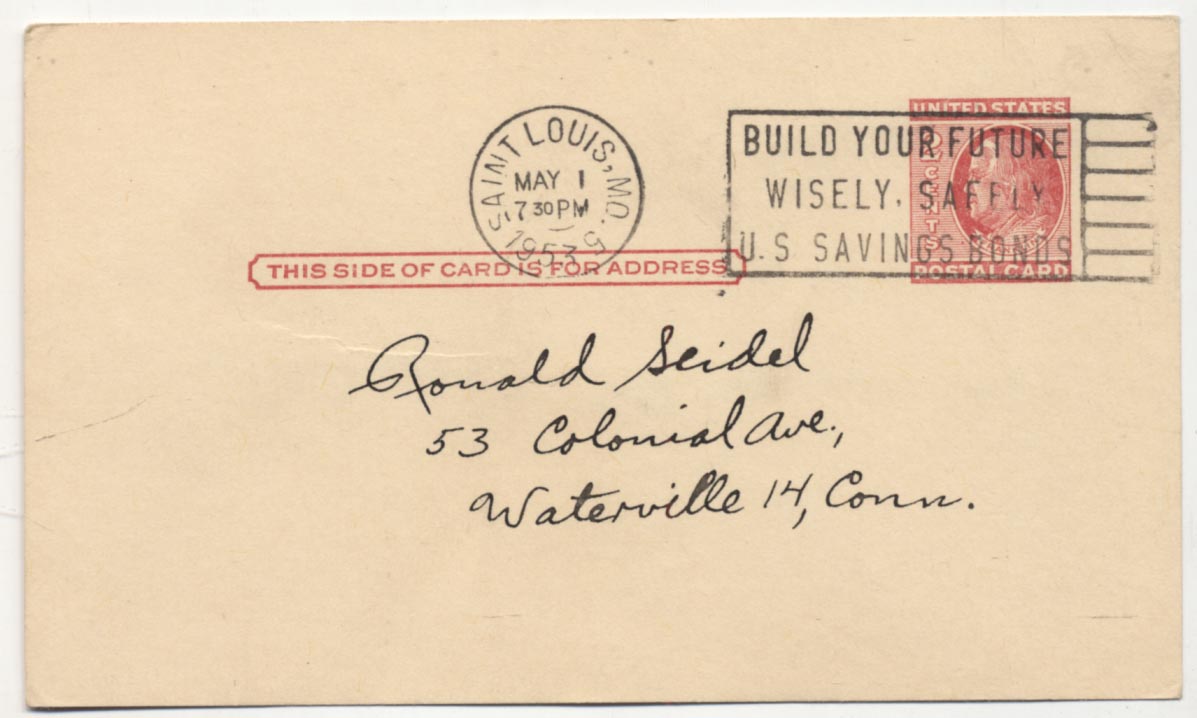 UNITED STATES
2 CENTS
POSTAL CARD
SAINT LOUIS, MO.
MAY 1
7 30 PM
1953
BUILD YOUR FUTURE
WISELY, SAFELY
U.S SAVINGS BONDS
THIS SIDE OF CARD IS FOR ADDRESS
Ronald Seidel
53 Colonial Ave.,
Waterville 14, Conn.